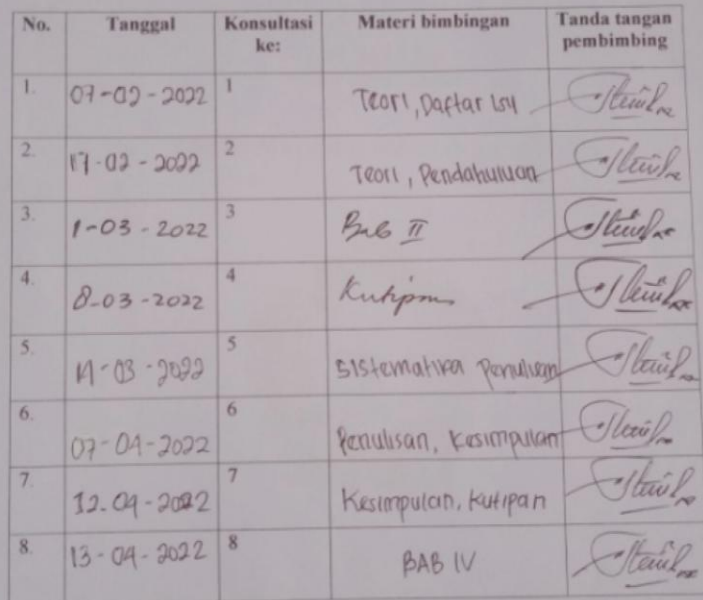 No. Tanggal Konsultasi ke: Materi bimbingan Tanda tangan pembimbing
1. 07-02-2022 1 Teori, Daftar Isi
2. 17-02-2022 2 Teori, Pendahuluan
3. 1-03-2022 3 Bab II
4. 8-03-2022 4 Kutipan
5. 14-03-2022 5 Sistematika Penulisan
6. 07-04-2022 6 Penulisan, Kesimpulan
7. 12-04-2022 7 Kesimpulan, Kutipan
8. 13-04-2022 8 BAB IV